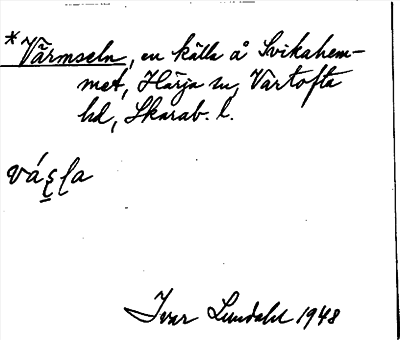 * Värmseln, en källa å Svikahem-
met, Härja sn, Vartofta
hd, Skarab. l.
Ivar Lundahl 1948